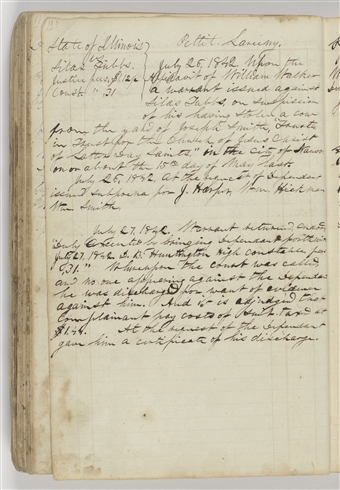 State of Illinois } Petit Larceny.
vs
Silas Tubbs. July 26, 1842 Upon the
Justice fees, $1.12½ affidavit of William Walker
Const. " .31 a warrant issued against
Silas Tubbs, on suspicion
of his having stolen a cow
from the yard of Joseph Smith, "Trustee
in Trust for the Church of Jesus Christ
of Latter Day Saints," in the city of Nauvoo
on or about the 15th day of May last.
July 26, 1842, At the request of defendant
issued Subpoena for J. Harper, Wm Hickman
Wm Smith.
July 27, 1842. Warrant returned, endorsed
"Duly Executed by bringing defendant forth with
July 27, 1842 D. B. Huntington High constable, fees
$.31." Whereupon the Court was called,
and no one appearing against the defendant
he was discharged for want of evidence
against him. And it is adjudged that
complainant pay costs of suit. Taxed at
$1.44. At the request of the defendant
gave him a certificate of his discharge.